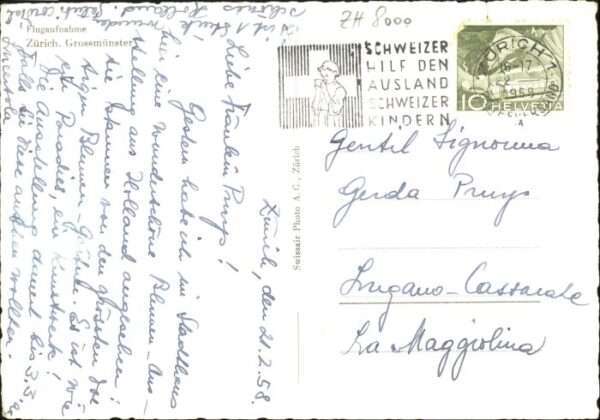 ZH 8000
Flugaufnahme
Zürich. Grossmünster
SCHWEIZER
HILF DEN
AUSLAND
SCHWEIZER
KINDERN
ZÜRICH 1
1958
10 HELVETIA
Swissair Photo A. G., Zürich
Zürich, den 21.2.58.
Liebe Fräulein Pruys!
Gestern habe ich im Stadthaus
hier eine wunderschöne Blumen-Aus-
stellung aus Holland angesehen!
Sie stammen von den grössten
Blumen-Es ist wie
ein Paradies, ein Kunstwerk!
Die Ausstellung dauert bis 3.3.
falls Sie diese ansehen wollten.
schönes Holland.
Gentil Signorina
Gerda Pruys
Lugano-Cassarate
La Maggiolina